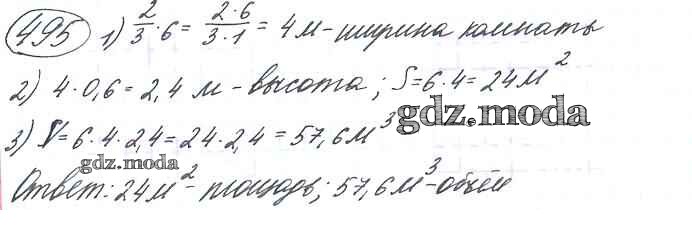 495 1) 2/3 · 6 = 2·6/3·1 = 4 м - ширина комнаты
2) 4 · 0,6 = 2,4 м - высота; S = 6 · 4 = 24 м²
gdz.moda
3) V = 6 · 4 · 2,4 = 24 · 2,4 = 57,6 м³
gdz.moda
Ответ: 24 м² - площадь; 57,6 м³ - объём